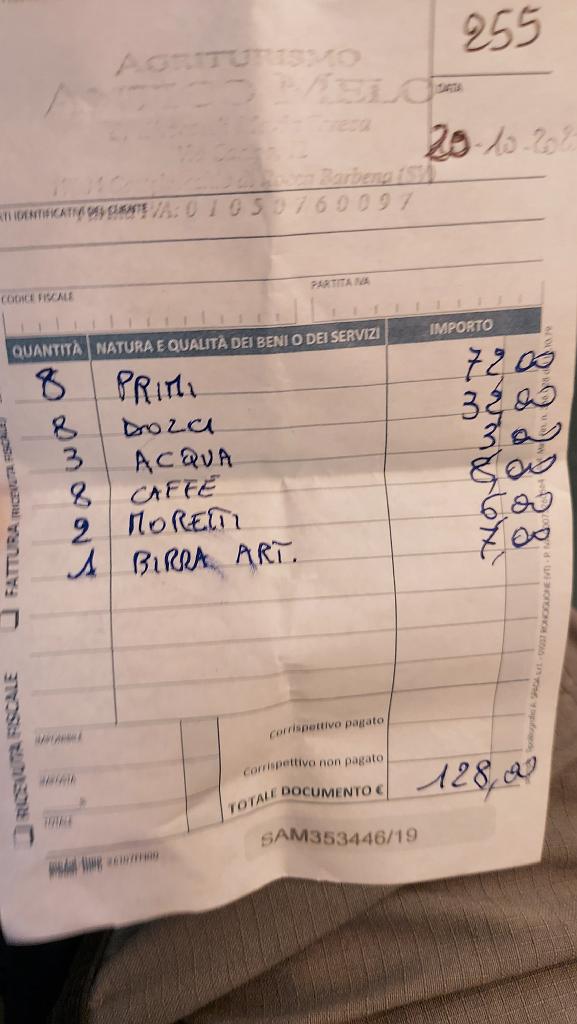 255
AGRITURISMO
ANTICO MELO
DATA
20-10-202
Rocca Barbena (SV)
Partita IVA: 01050760097
ATI IDENTIFICATIVI DEL CLIENTE
CODICE FISCALE PARTITA IVA
QUANTITÀ NATURA E QUALITÀ DEI BENI O DEI SERVIZI IMPORTO
8 PRIMI 72 00
8 DOLCI 32 00
3 ACQUA 3 00
8 CAFFÈ 8 00
2 MORETTI 6 00
1 BIRRA ART. 7,00
FATTURA (RICEVUTA FISCALE)
RICEVUTA FISCALE
Corrispettivo pagato
Corrispettivo non pagato
TOTALE
TOTALE DOCUMENTO € 128,00
SAM353446/19